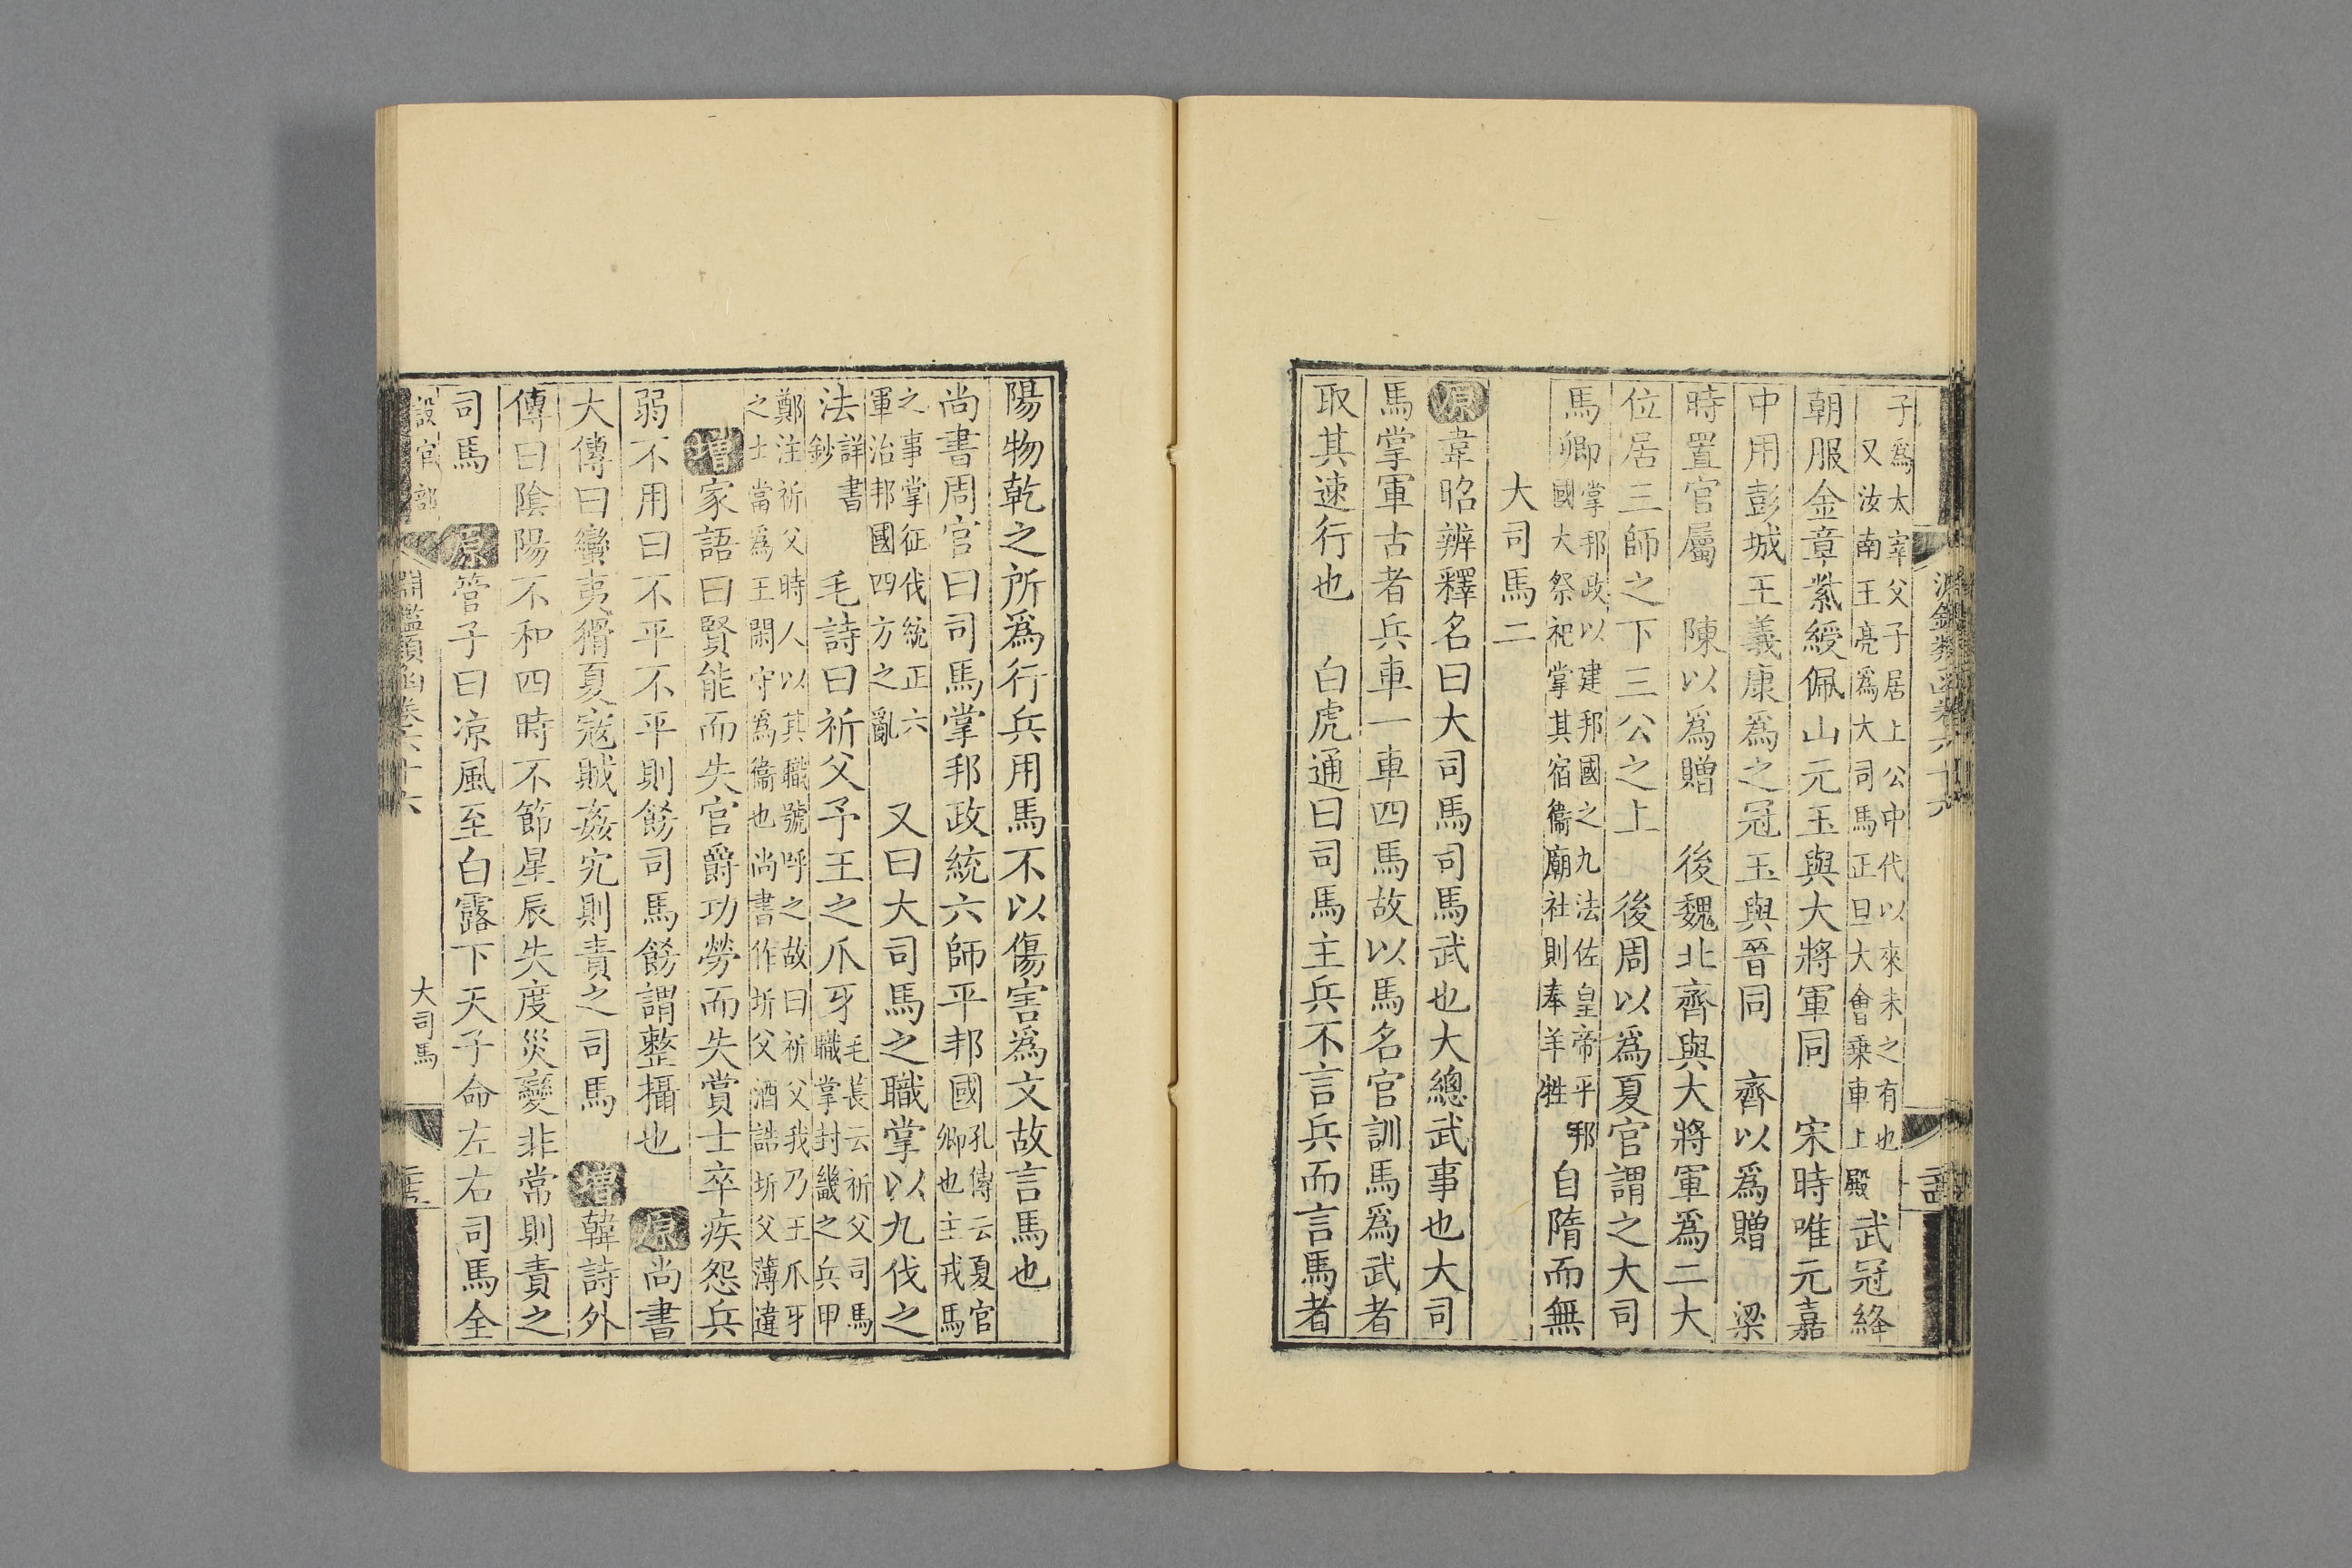 子爲太宰父子居上公中代以來未之有也
又汝南王亮爲大司馬正旦大會乗車上殿
武冠絳
朝服金章紫綬佩山元玉與大將軍同　宋時唯元嘉
中用彭城王義康爲之冠玉與晉同　齊以爲贈　梁
時置官屬　陳以爲贈　後魏北齊與大將軍爲二大
位居三師之下三公之上　後周以爲夏官謂之大司
馬卿
掌邦政以建邦國之九法佐皇帝平邦
國大祭祀掌其宿衞廟社則奉羊牲
自隋而無
大司馬二
原韋昭辨釋名曰大司馬司馬武也大總武事也大司
馬掌軍古者兵車一車四馬故以馬名官訓馬爲武者
取其速行也　白虎通曰司馬主兵不言兵而言馬者
陽物乾之所爲行兵用馬不以傷害爲文故言馬也
尚書周官曰司馬掌邦政統六師平邦國
孔傳云夏官
卿也主戎馬
之事掌征伐統正六
軍治邦國四方之亂
又曰大司馬之職掌以九伐之
法
詳書
鈔
毛詩曰祈父予王之爪牙
毛萇云祈父司馬
職掌封畿之兵甲
鄭注祈父時人以其職號呼之故曰祈父我乃王爪牙
之士當爲王閑守爲衞也尚書作圻父酒誥圻父薄違
增家語曰賢能而失官爵功勞而失賞士卒疾怨兵
弱不用曰不平不平則飭司馬飭謂整攝也　原尚書
大傳曰蠻夷猾夏寇賊姦宄則責之司馬　增韓詩外
傳曰陰陽不和四時不節星辰失度災變非常則責之
司馬　原管子曰凉風至白露下天子命左右司馬全
設官部
淵鑑類函卷六十六
大司馬